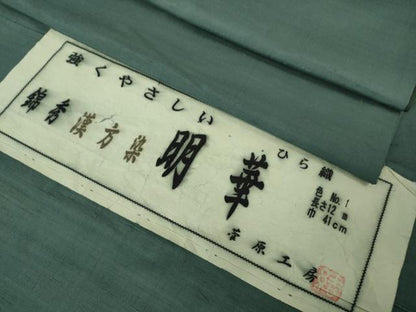 強くやさしい
錦秀 漢方染 明華
ひら織
色No.1
長さ12m
巾41cm
菅原工房